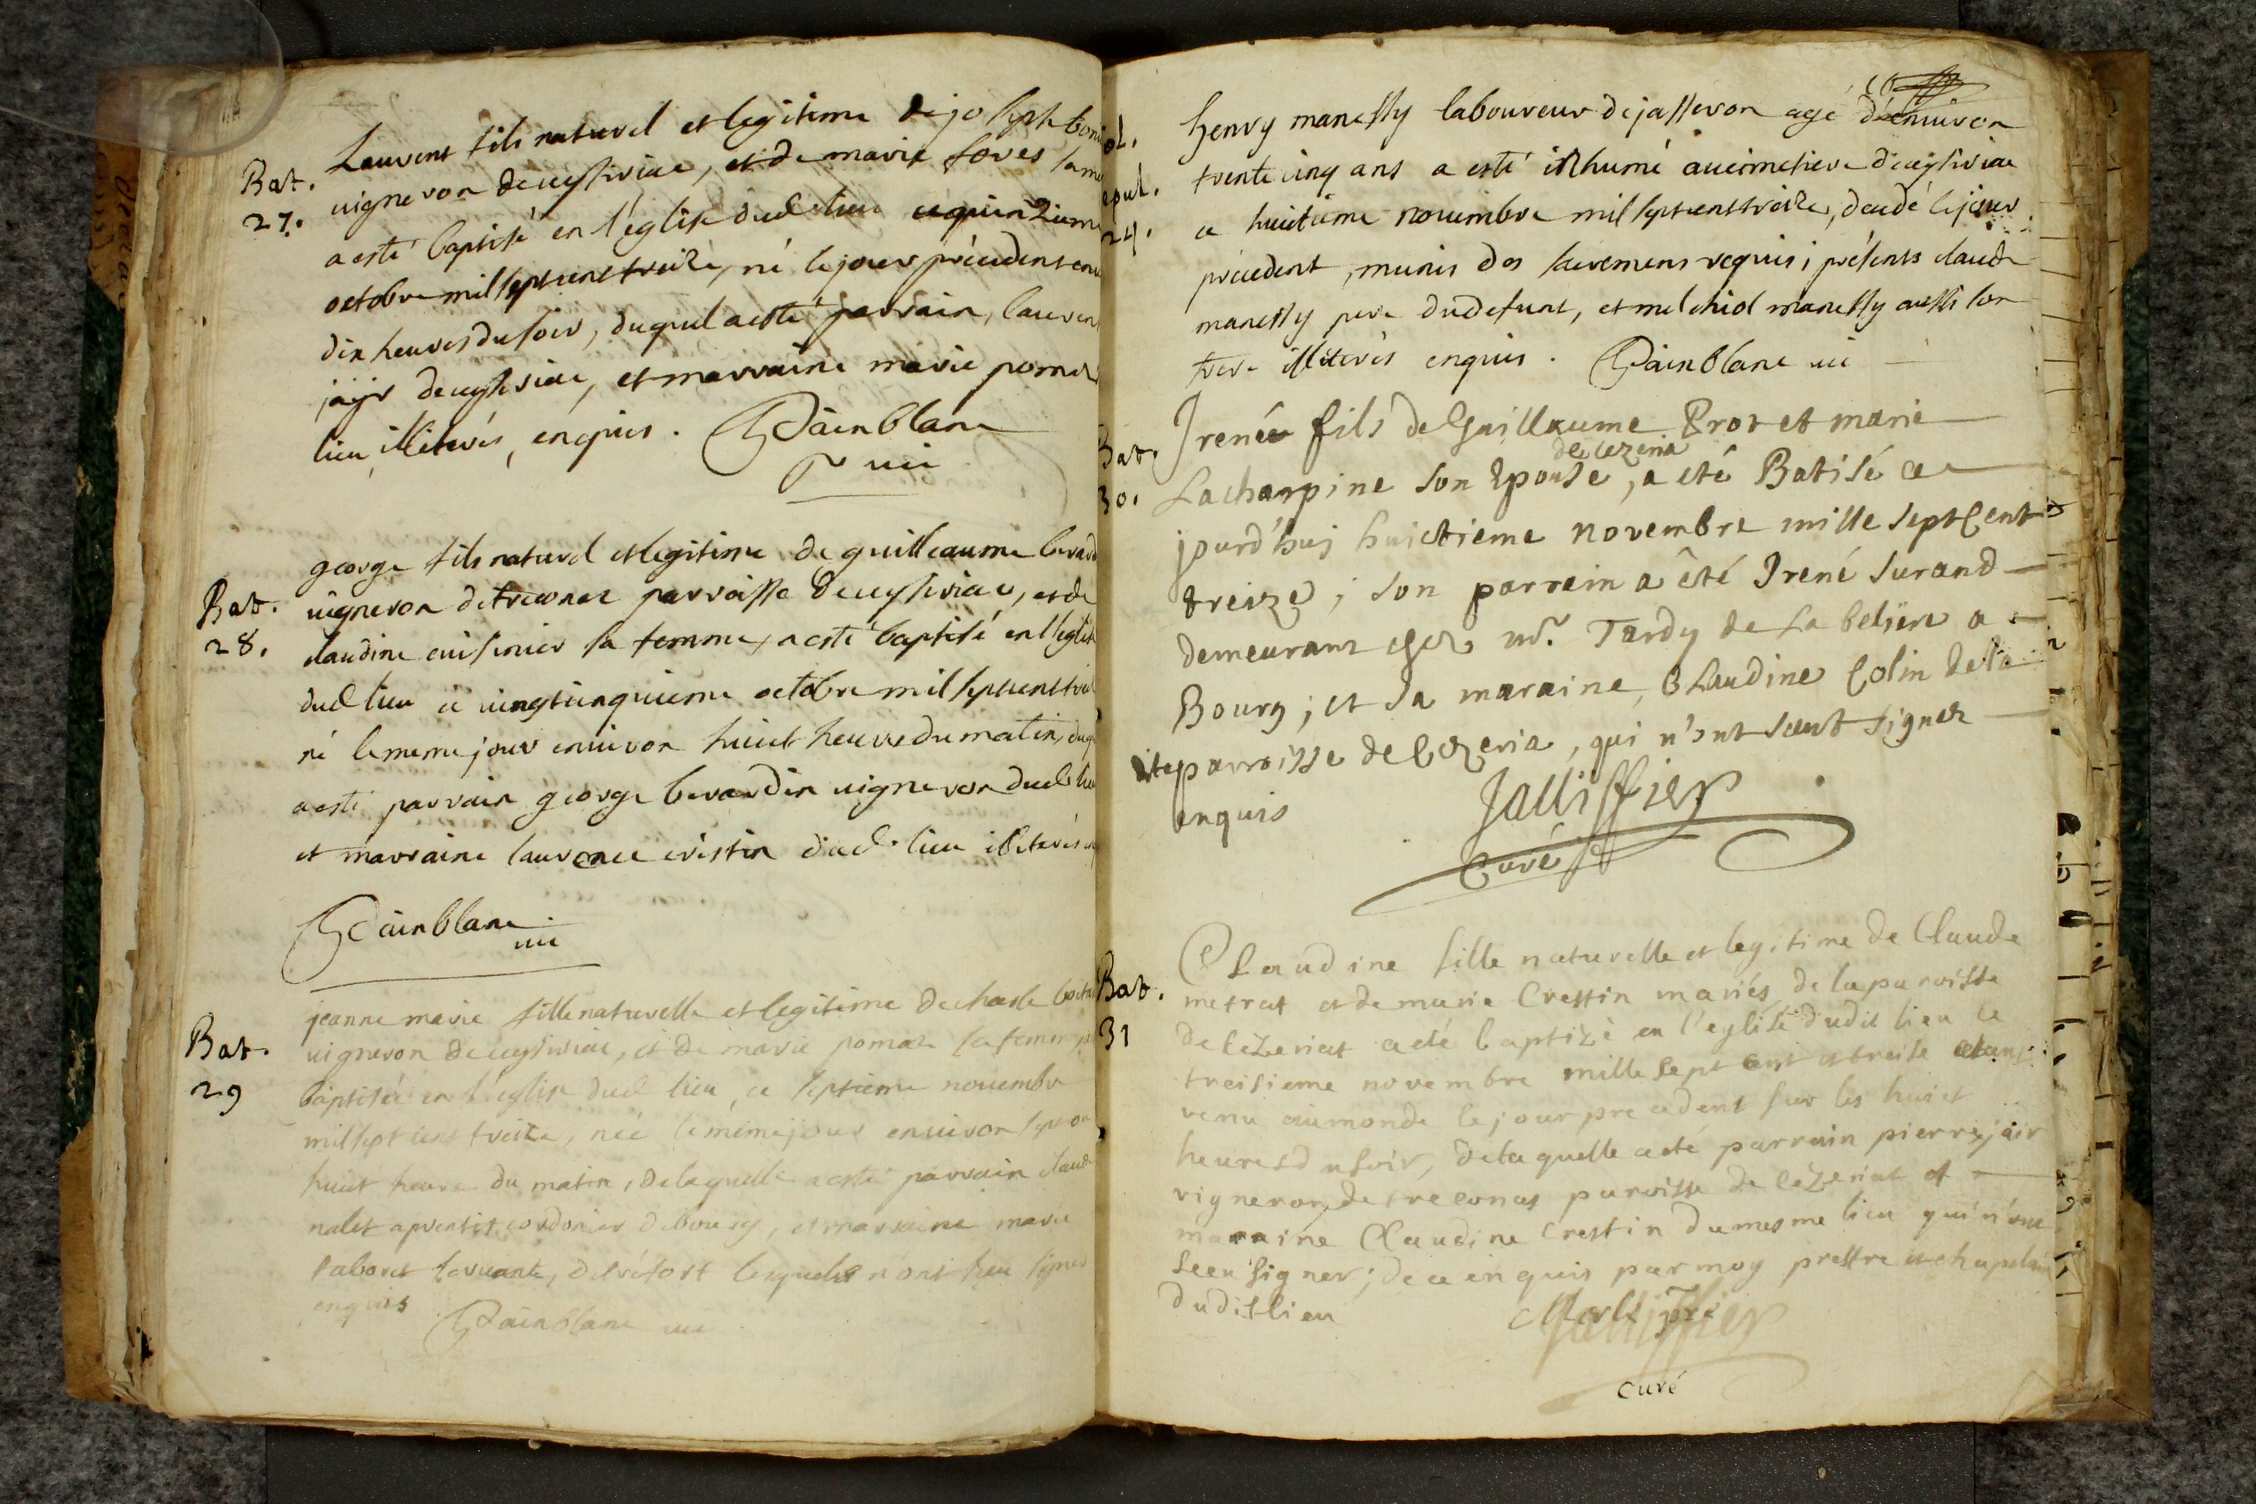 Bat.
27.
Laurent fils naturel et legitime de joseph
vigneron de ceyseriac, et de marie fores sa
a esté baptisé en l'église dud lieu ce quinzieme
octobre mil sept cens treize, né le jour précédent
dix heures du soir, duquel a esté parrain, lauren
jayr de ceyseriac, et marraine marie pomat
lieu illiterés, enquis. Painblanc
curé
Bat.
28.
george fils naturel et legitime de guilleaume
vigneron de treconas parroisse de ceyseriac, et de
claudine cuisinier sa femme, a esté baptisé en l'eglise
dud lieu ce vingtcinquieme octobre mil sept cens
né le meme jour environ huict heures du matin,
a esté parrain george berardin vigneron dud lieu
et marraine laurence cristin dud. lieu illiterés
Painblanc
curé
Bat.
29
jeanne marie fille naturelle et legitime de charle
vigneron de ceyseriac, et de marie pomat sa femme
baptisée en l'église dud lieu, ce septieme novembre
mil sept cens treize, née le même jour environ sept ou
huict heure du matin, de laquelle a esté parrain claude
nalet aprentif cordonier de bourg, et marraine marie
servante, lesquels n'ont sceu signer
enquis Painblanc curé
24.
henry manessy laboureur de jasseron agé d'environ
trente cinq ans a esté inhumé au cimetiere de ceyseriac
ce huitieme novembre mil sept cens treize, decedé le jour
précédent, munis des sacremens requis; présents claude
manessy pere du defunt, et melchiol manessy aussi son
frere illiterés enquis. Painblanc curé
Bat.
30.
Irenée fils de Guillaume Prot et marie
de cezeria
Lacharpine son Epouse, a eté Batisé ce
jourd'huy huictieme novembre mille sept Cent
treize; son parrein a êté Irené Surand
demeurant chez Mr. Tardy de La belïere a
Bourg; et sa maraine, Claudine Colin de la
dite parroisse de Cezeria, qui n'ont sceut signer
enquis
Jalliffier
Curé
Bat.
31
Claudine fille naturelle et legitime de Claude
metrat et de marie Crestin mariés de la paroisse
de cézeriat a eté baptizè en l'eglise dudit lieu le
treisieme novembre mille sept cent et treise etant
venu au monde le jour precedent sur les huict
heures du soir, de laquelle a eté parrain pierre jair
vigneron de treconas paroisse de cézeriat et
maraine Claudine Crestin du mesme lieu qui n'ont
sceu signer; de ce enquis par moy prestre et chapelain
dudit lieu
Jalliffier
curé